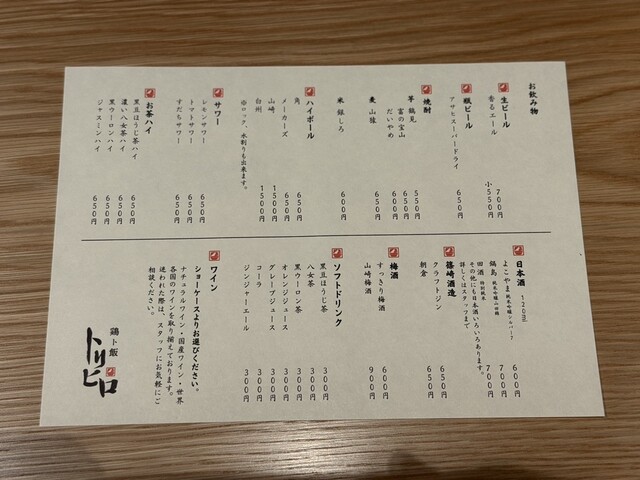 お飲み物
生ビール
香るエール 700円
小550円
瓶ビール
アサヒスーパードライ 650円
焼酎
芋 鶴見 550円
富の宝山 650円
だいやめ 600円
麦 山猿 650円
米 銀しろ 600円
ハイボール
角 650円
メーカーズ 650円
山崎 1500円
白州 1500円
※ロック、水割りも出来ます。
サワー
レモンサワー 650円
トマトサワー 650円
すだちサワー 650円
お茶ハイ
黒豆ほうじ茶ハイ 650円
濃い八女茶ハイ 650円
黒ウーロンハイ 650円
ジャスミンハイ 650円
日本酒 120ml
よこやま 純米吟醸シルバー7 600円
鍋島 純米吟醸山田錦 700円
田酒 特別純米 700円
その他にも日本酒いろいろあります。
詳しくはスタッフまで
篠崎酒造
クラフトジン 650円
朝倉 650円
梅酒
すっきり梅酒 600円
山崎梅酒 900円
ソフトドリンク
黒豆ほうじ茶 300円
八女茶 300円
黒ウーロン茶 300円
オレンジジュース 300円
グレープジュース 300円
コーラ 300円
ジンジャーエール 300円
ワイン
ショーケースよりお選びください。
ナチュラルワイン・国産ワイン・世界
各国のワインを取り揃えております。
迷われた際は、スタッフにお気軽にご
相談ください。
鶏ト飯
トリヒロ